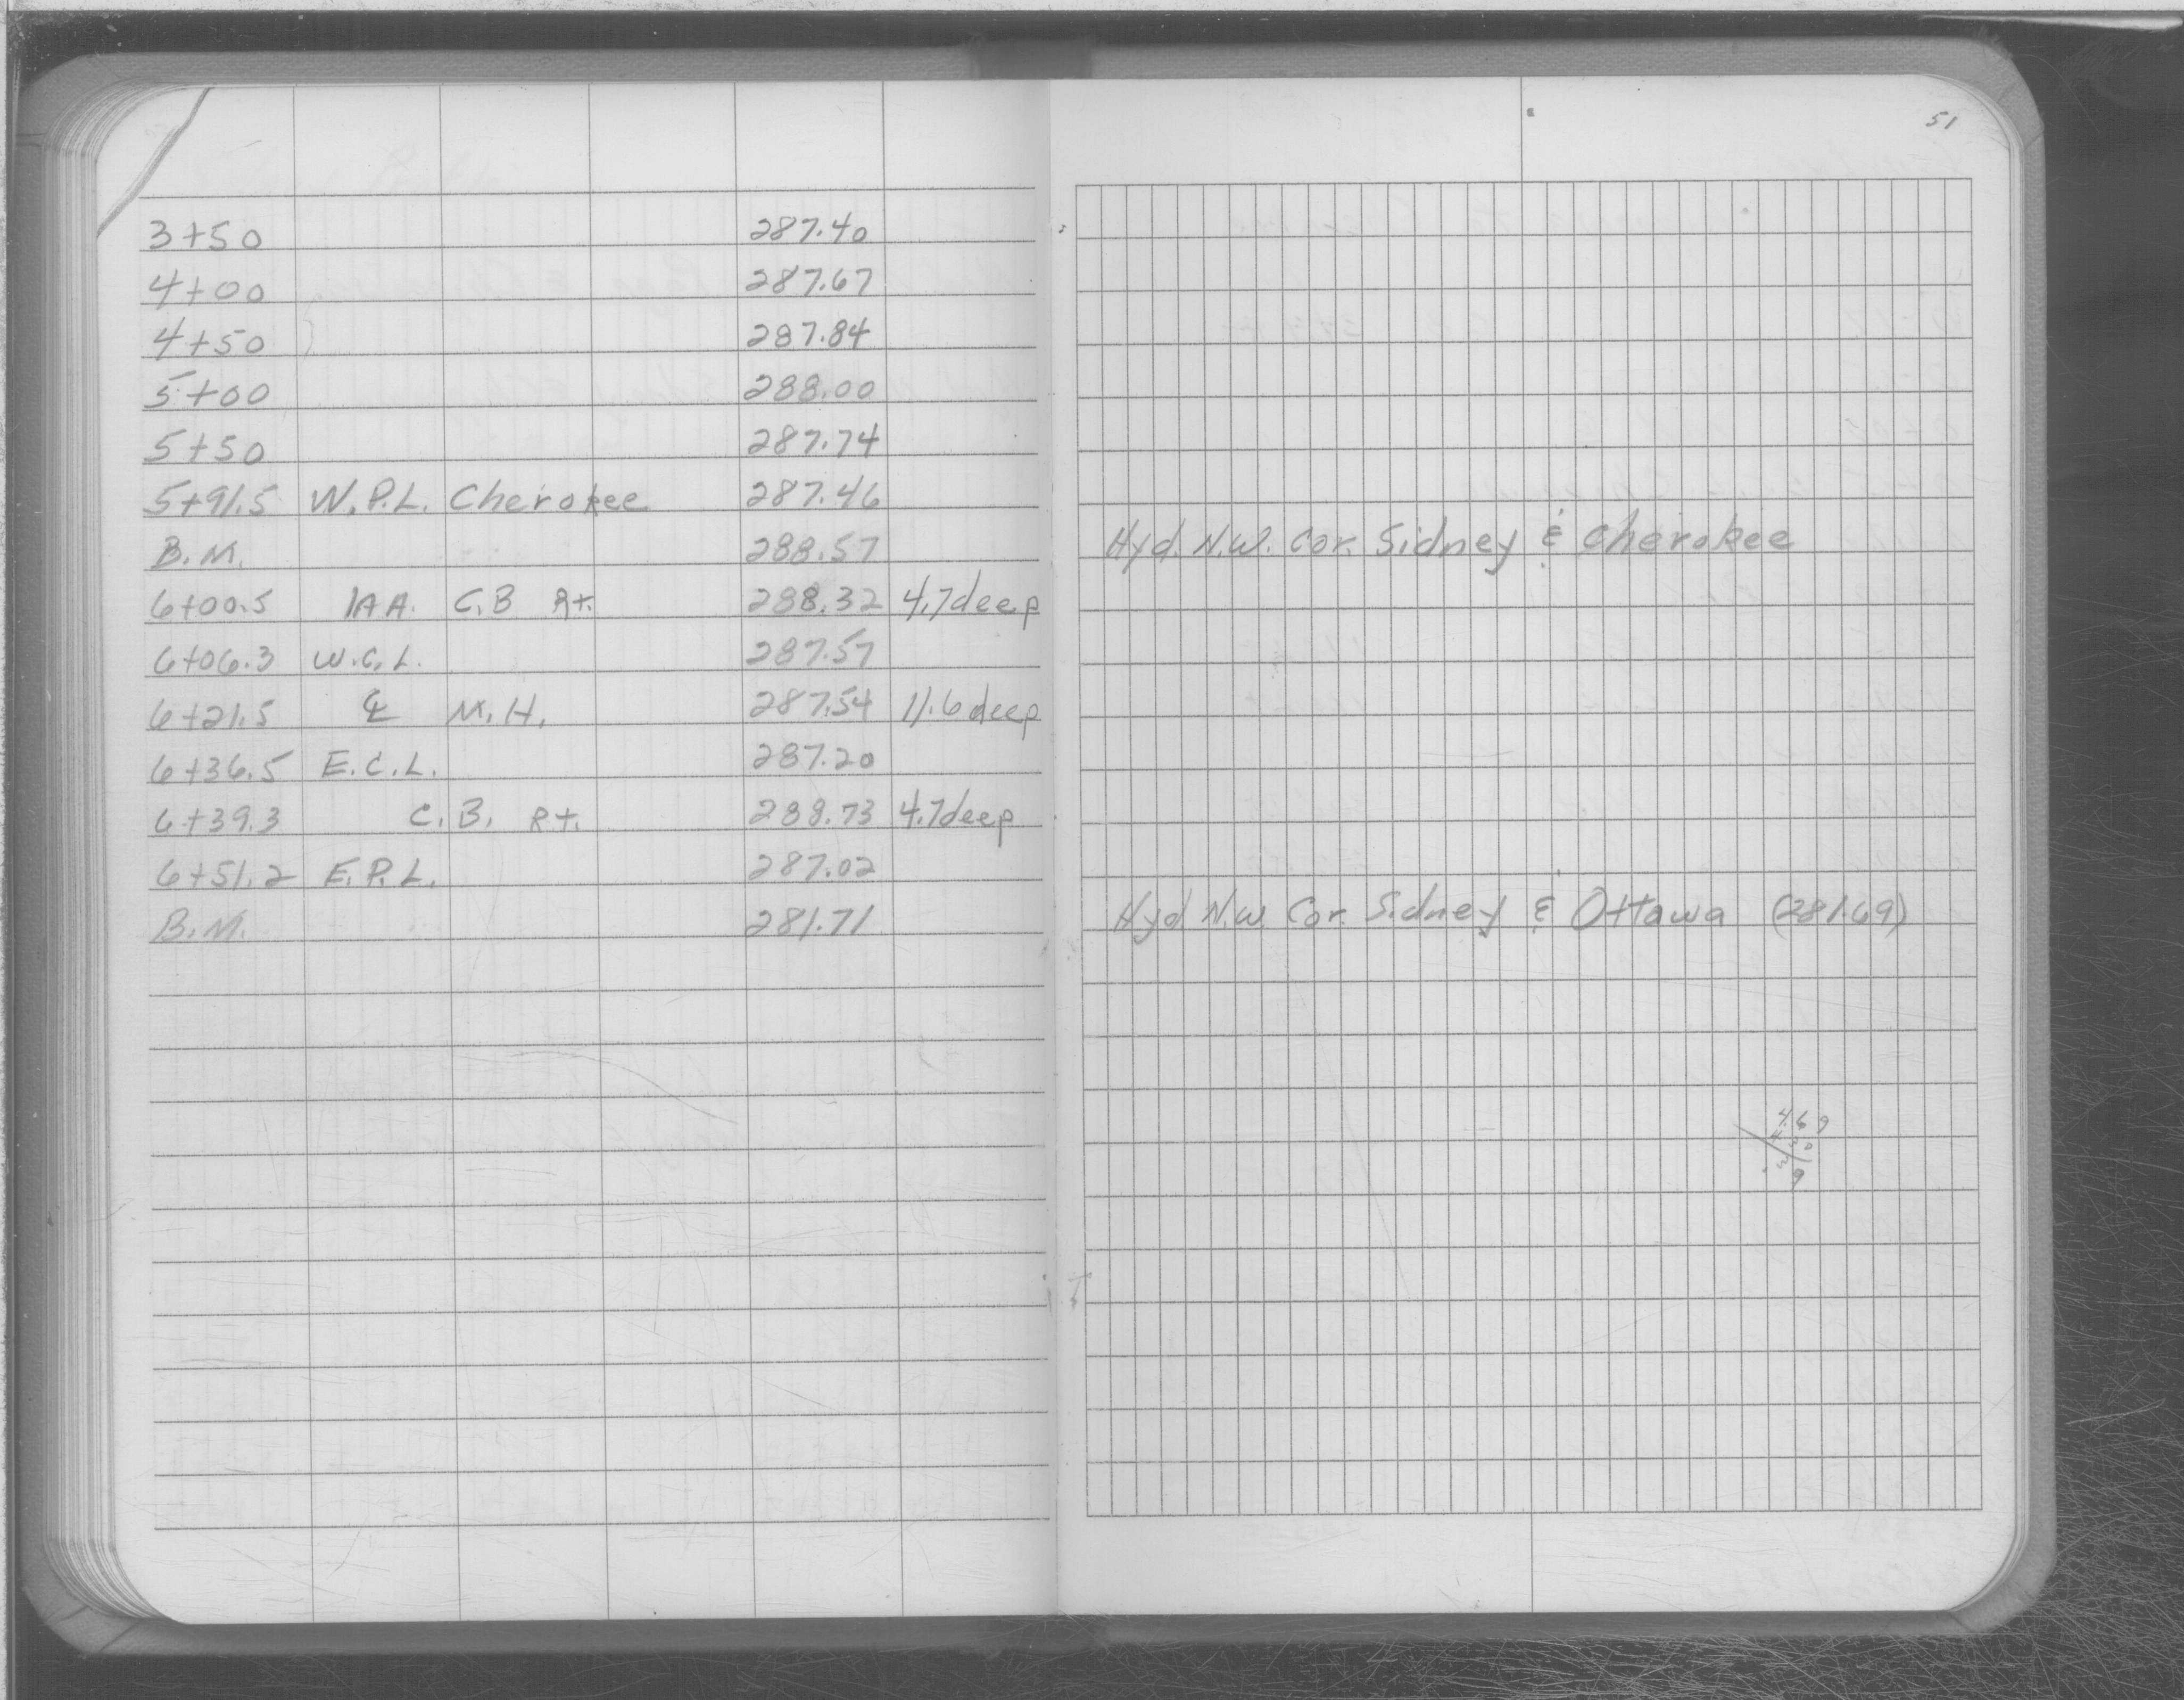 51
3+50 287.40
4+00 287.67
4+50 287.84
5+00 288.00
5+50 287.74
5+91.5 W.P.L. Cherokee 287.46
B.M. 288.57 Hyd. N.W. Cor. Sidney & Cherokee
6+00.5 1AA. C.B Rt. 288.32 4.7deep
6+06.3 W.C.L. 287.57
6+21.5 ℄ M.H. 287.54 11.6 deep
6+36.5 E.C.L. 287.20
6+39.3 C.B. Rt. 288.73 4.7deep
6+51.2 E.P.L. 287.02
B.M. 281.71 Hyd N.W. Cor. Sidney & Ottawa (281.69)
4.69